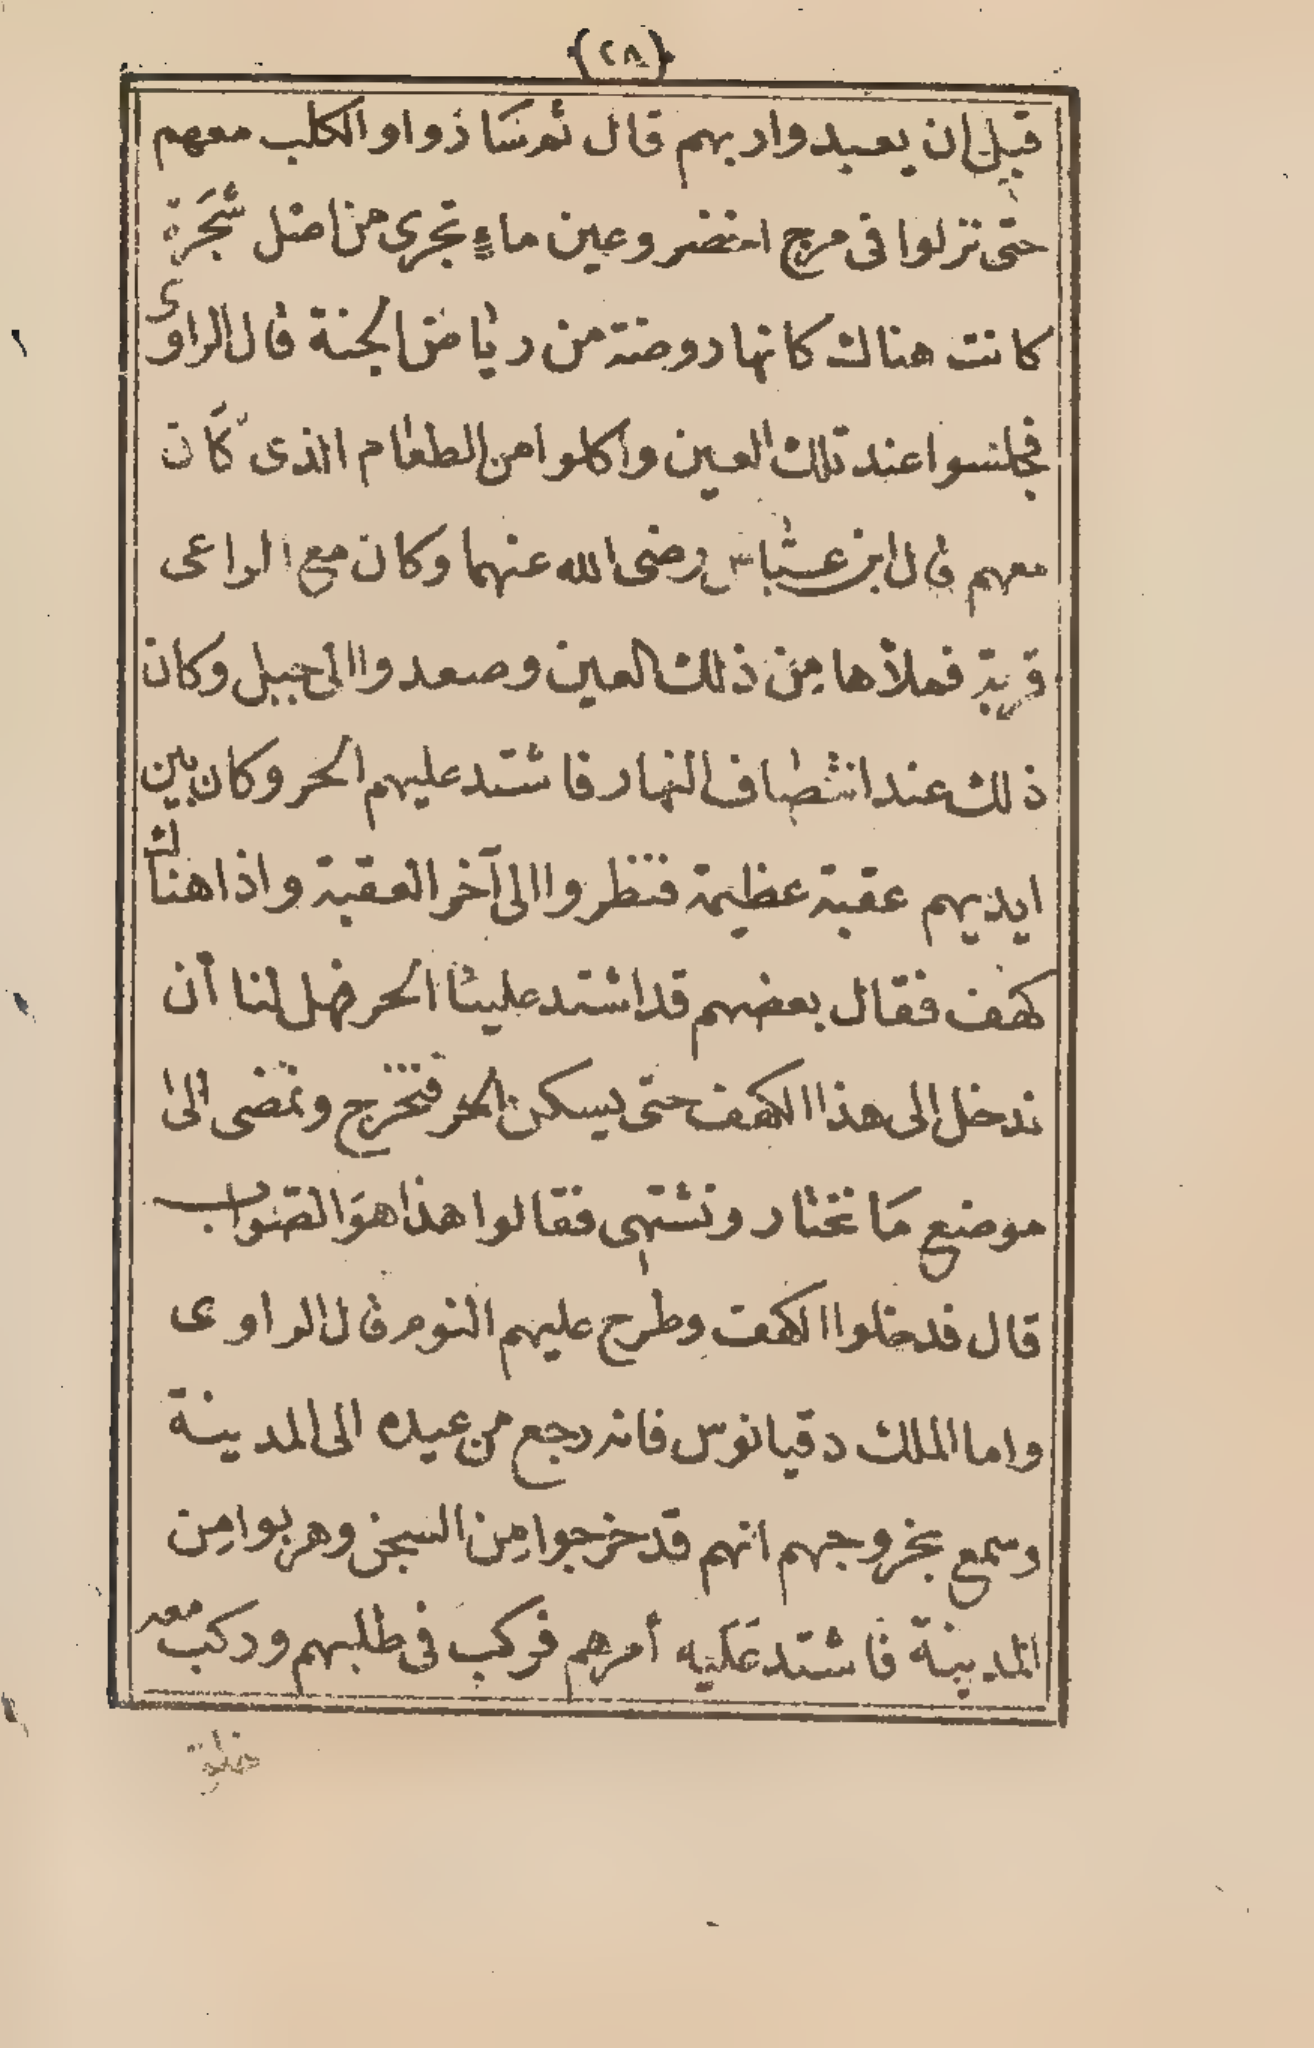 (٢٨)
قبل ان يعبدوا ربهم قال ثم ساذوا والكلب معهم
حتى نزلوا فى مرج اخضر وعين ماء تجرى من اصل شجرة
كانت هناك كانها روضة من رياض الجنة قال الراوى
فجلسوا عند تلك العين واكلوا من الطعام الذى كان
معهم قال ابن عباس رضى الله عنهما وكان مع الراعى
قربة فملأها من ذلك العين وصعدوا الى جبل وكان
ذلك عند انتصاف النهار فاشتد عليهم الحر وكان بين
ايديهم عقبة عظيمة فنظروا الى آخر العقبة واذا هناك
كهف فقال بعضهم قد اشتد علينا الحر فهل لنا أن
ندخل الى هذا الكهف حتى يسكن الحر فنخرج ونمضى الى
موضع ما نختار ونشتهى فقالوا هذا هو الصواب
قال فدخلوا الكهف وطرح عليهم النوم قال الراوى
واما الملك دقيانوس فانه رجع من عيده الى المدينة
وسمع بخروجهم انهم قد خرجوا من السجن وهربوا من
المدينة فاشتد عليه أمرهم فركب فى طلبهم وركب معه
خلق